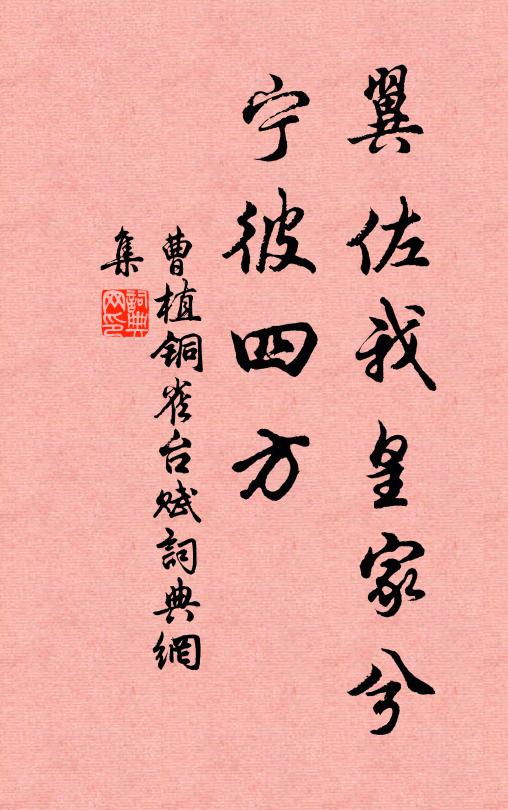 翼佐我皇家兮
宁彼四方
曹植铜雀台赋詞典網
集
詞典网印